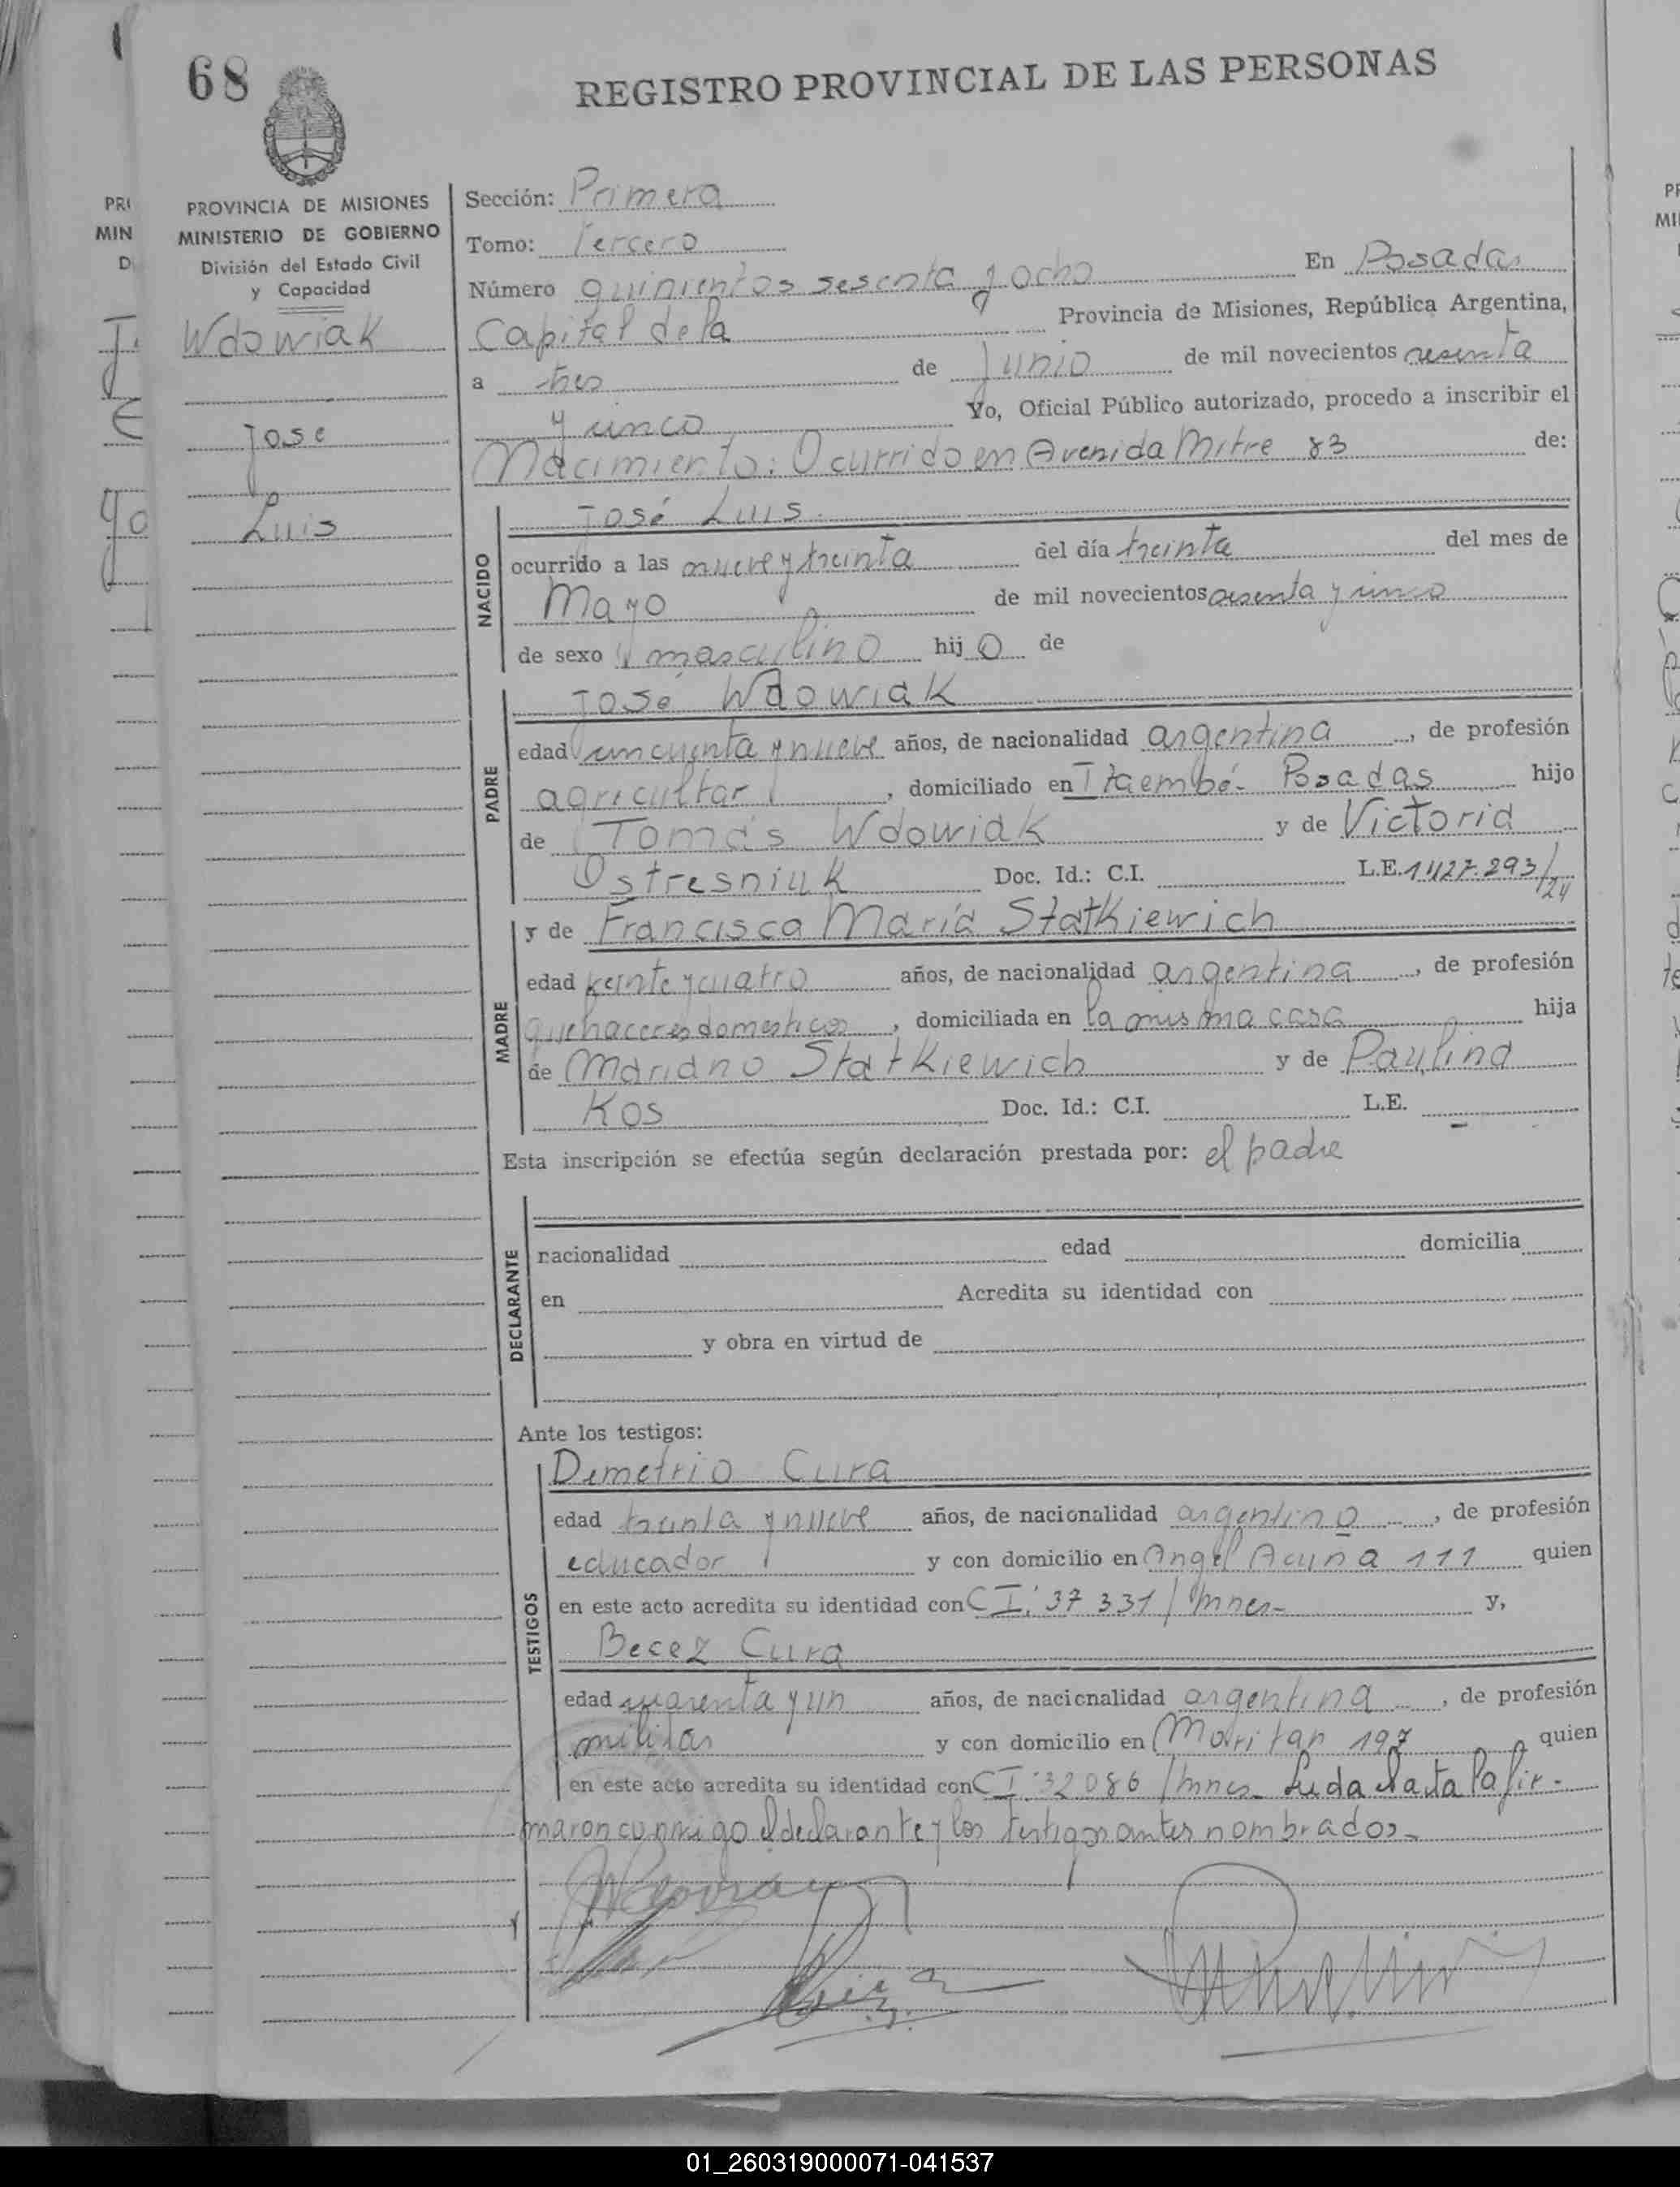 68
REGISTRO PROVINCIAL DE LAS PERSONAS
PROVINCIA DE MISIONES
MINISTERIO DE GOBIERNO
División del Estado Civil
y Capacidad
Wdowiak
Jose
Luis
Sección: Primera
Tomo: Tercero
Número quinientos sesenta y ocho En Posadas
Capital de la Provincia de Misiones, República Argentina,
a tres de Junio de mil novecientos sesenta
y cinco Yo, Oficial Público autorizado, procedo a inscribir el
Nacimiento: Ocurrido en Avenida Mitre 83 de:
NACIDO
José Luis
ocurrido a las nueve y treinta del día treinta del mes de
Mayo de mil novecientos sesenta y cinco
de sexo masculino hij o de
PADRE
José Wdowiak
edad cincuenta y nueve años, de nacionalidad argentina, de profesión
agricultor, domiciliado en Itaembé - Posadas hijo
de Tomás Wdowiak y de Victoria
Ostresniuk Doc. Id.: C.I. L.E. 1427.293/24
MADRE
y de Francisca María Statkiewich
edad treinta y cuatro años, de nacionalidad argentina, de profesión
quehaceres domesticos, domiciliada en la misma casa hija
de Mariano Statkiewich y de Paulina
Kos Doc. Id.: C.I. L.E. -
Esta inscripción se efectúa según declaración prestada por: el padre
DECLARANTE
nacionalidad edad domicilia
en Acredita su identidad con
y obra en virtud de
Ante los testigos:
TESTIGOS
Demetrio Cura
edad treinta y nueve años, de nacionalidad argentino, de profesión
educador y con domicilio en Angel Acuña 111 quien
en este acto acredita su identidad con C I. 37 331/Mnes- y,
Becez Cura
edad cuarenta y un años, de nacionalidad argentina, de profesión
militar y con domicilio en 197 quien
en este acto acredita su identidad con C I. 32086/Mnes. Leida el acta la fir-
maron conmigo el declarante y los testigos antes nombrados-
01_260319000071-041537